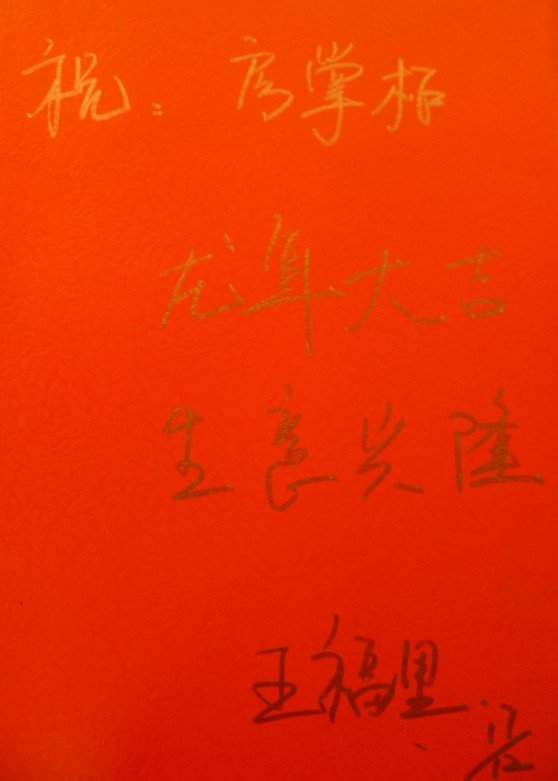 祝：房掌柜
龙年大吉
生意兴隆
王福里.